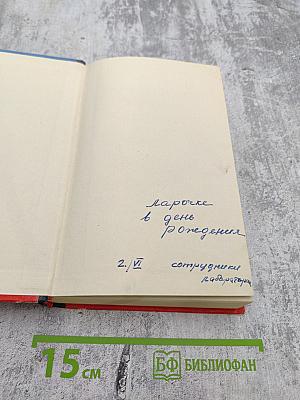 Ларочке
в день
рождения
2/VI сотрудники
лаборатории
15 см
БФ БИБЛИОФАН